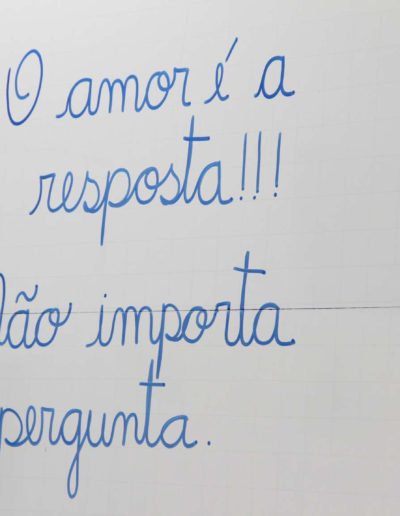 O amor é a
resposta!!!
Não importa
pergunta.